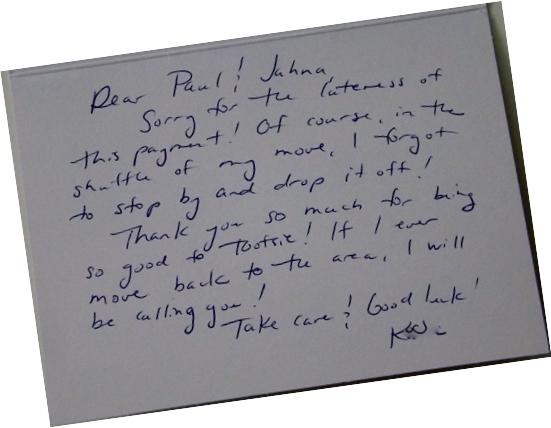 Dear Paul & Jahna,
Sorry for the lateness of
this payment! Of course, in the
shuffle of my move, I forgot
to stop by and drop it off!
Thank you so much for being
so good to Tootsie! If I ever
move back to the area, I will
be calling you!
Take care & Good luck!